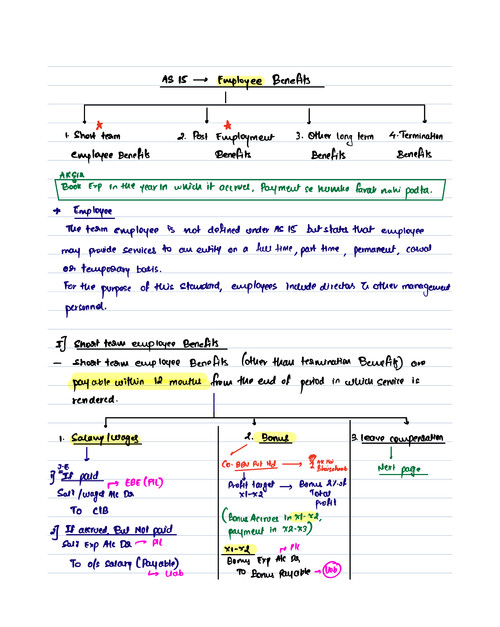 AS 15 → Employee Benefits
1. Short team
employee Benefits
2. Post Employment
Benefits
3. Other long term
Benefits
4. Termination
Benefits
Book Exp in the year in which it accrues, Payment se humko farak nahi padta.
→ Employee
The term employee is not defined under AS 15 but states that employee
may provide services to an entity on a full time, part time, permanent, casual
or temporary basis.
For the purpose of this standard, employees include directors & other management
personnel.
I] Short team employee Benefits
- Short team employee Benefits (other than termination Benefits) are
payable within 12 months from the end of period in which service is
rendered.
1. Salary/wages
J.E
1] If paid
EBE (P/L)
Sal/wages A/c Dr
To C/B
2] If accrued, But Not paid
Sal Exp A/c Dr → P/L
To o/s Salary (Payable)
↳ Liab
2. Bonus
Profit target → Bonus 2% of
x1-x2 Total
profit
(Bonus Accrues in x1-x2,
payment in x2-x3)
x1-x2
P/L
Bonus Exp A/c Dr
To Bonus Payable → Liab
3. leave compensation
Next page